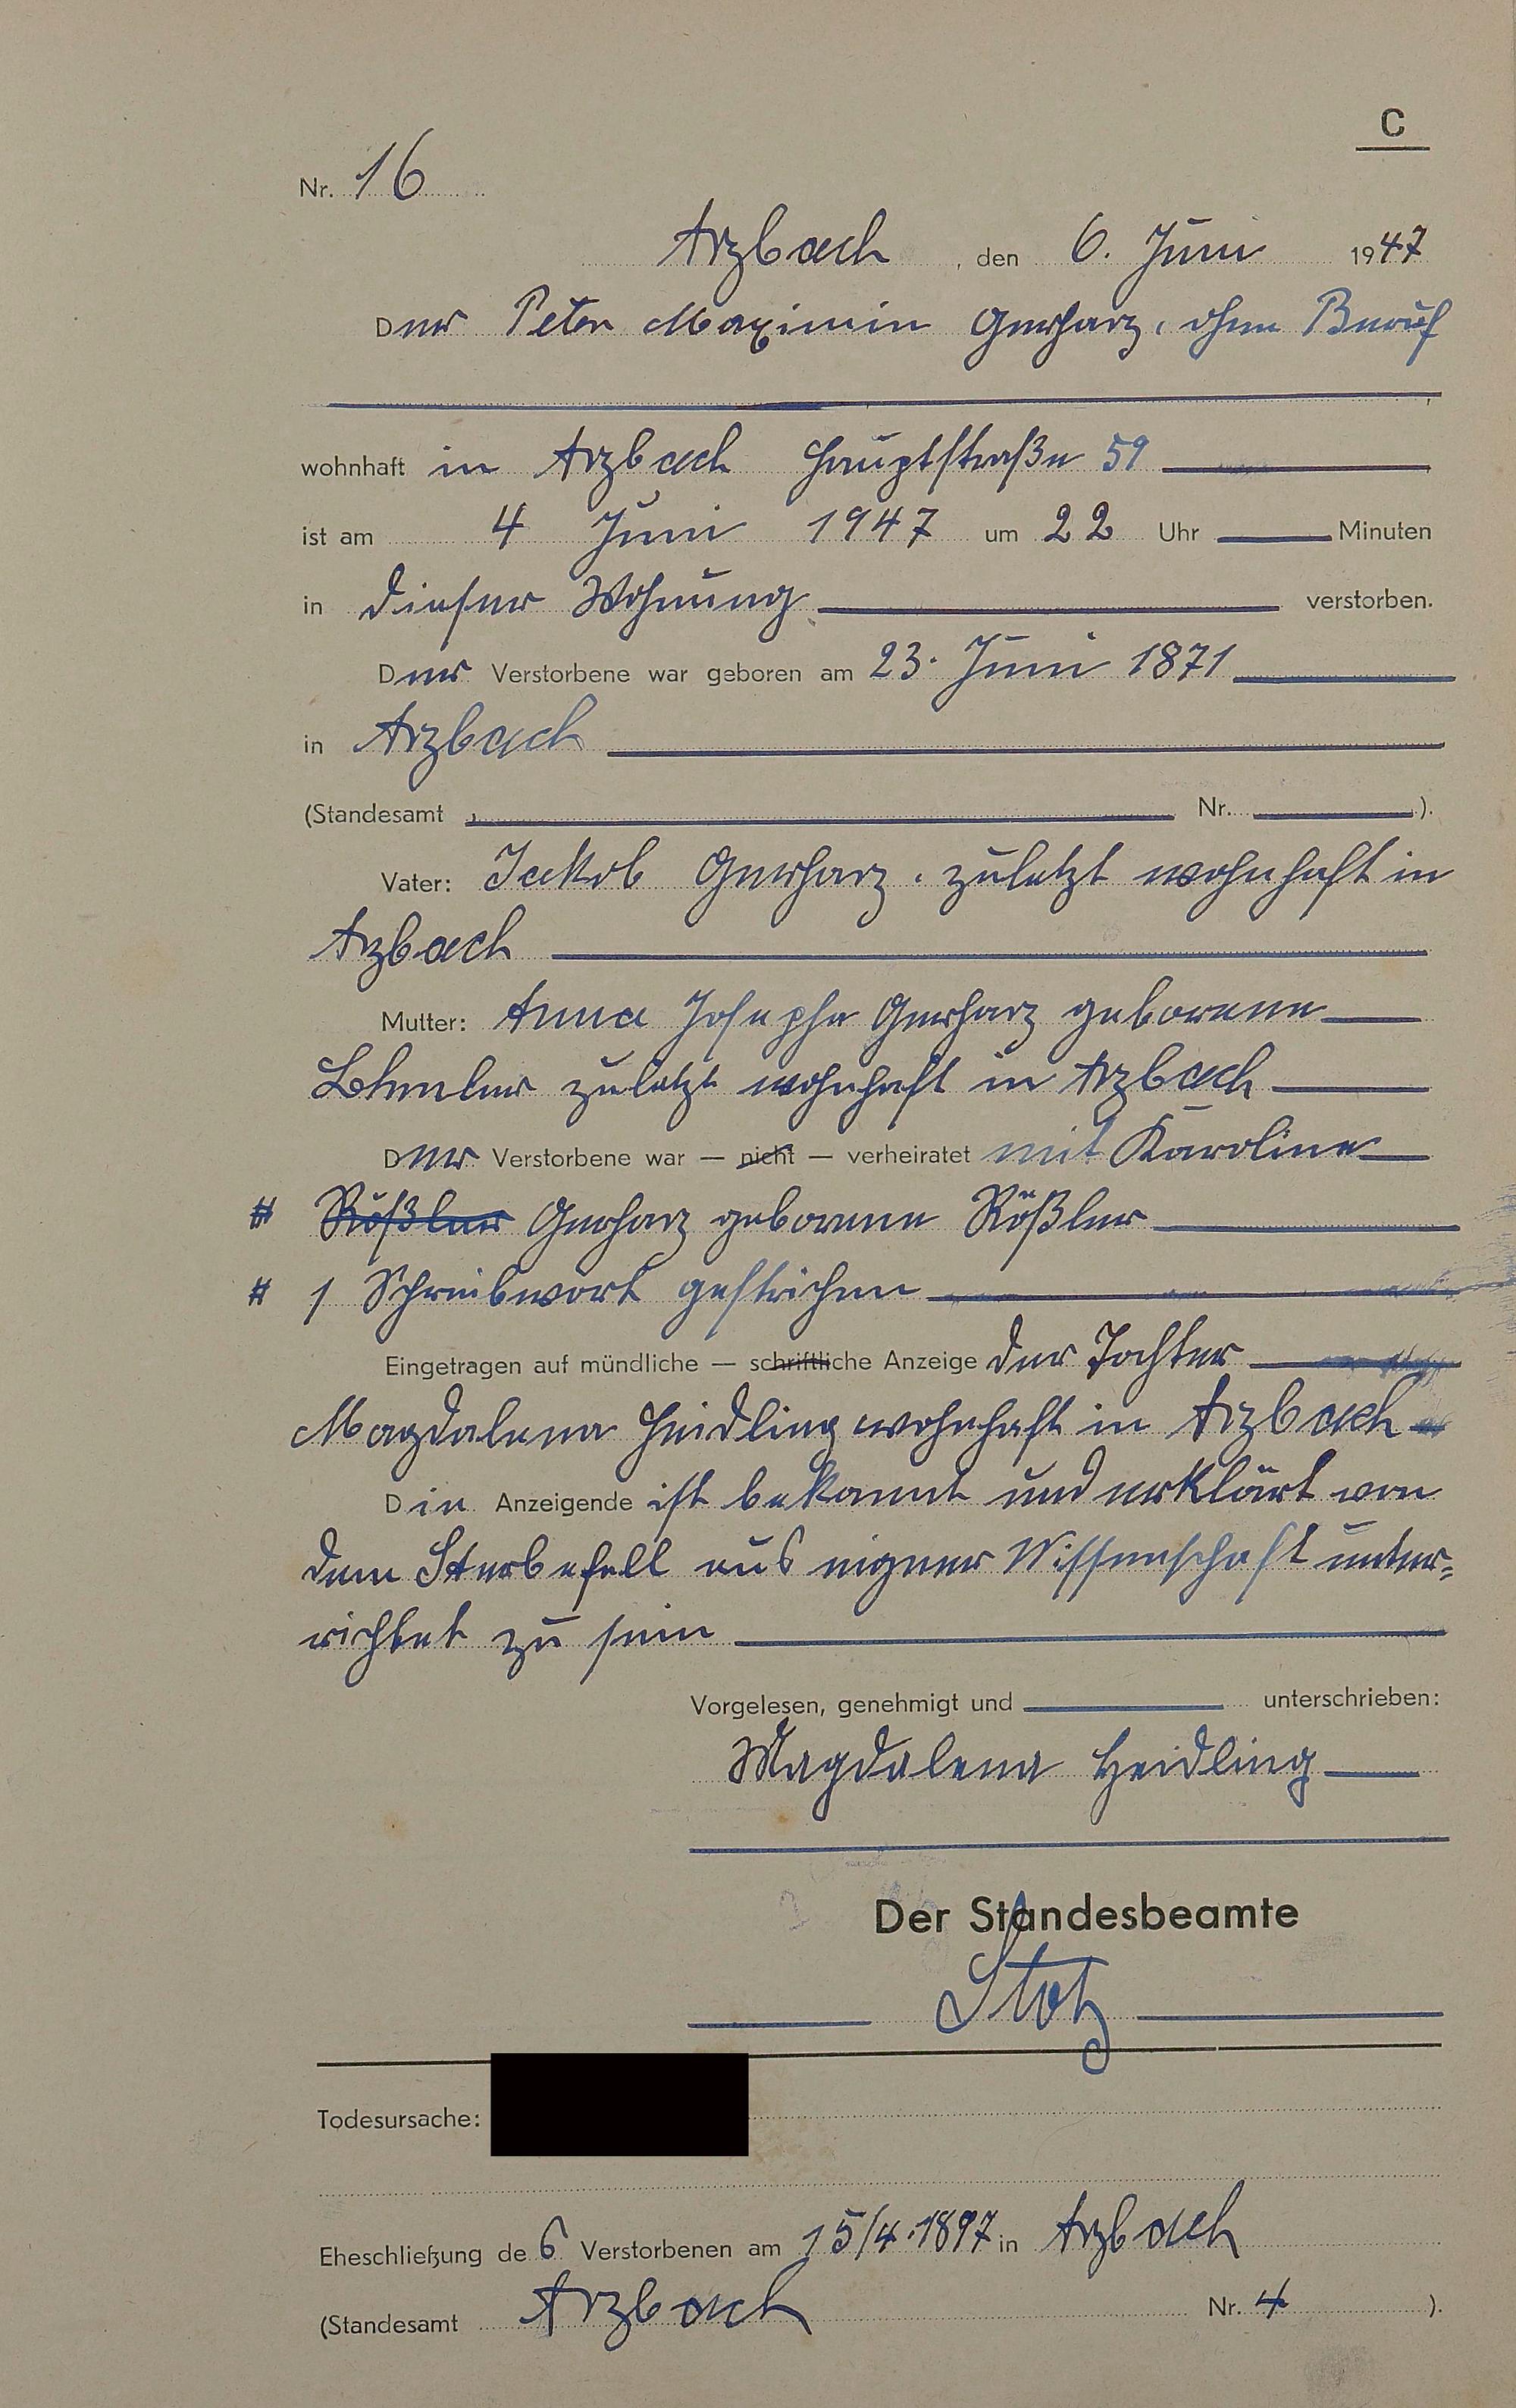 C
Nr. 16
Arzbach, den 6. Juni 1947
Der Peter Maximin Gerharz, ohne Beruf
wohnhaft in Arzbach Hauptstraße 59
ist am 4 Juni 1947 um 22 Uhr Minuten
in dieser Wohnung verstorben.
Der Verstorbene war geboren am 23. Juni 1871
in Arzbach
(Standesamt Nr. ).
Vater: Jakob Gerharz, zuletzt wohnhaft in
Arzbach
Mutter: Anna Josepha Gerharz geborene
zuletzt wohnhaft in Arzbach
Der Verstorbene war — nicht — verheiratet mit Karoline
# Rößler Gerharz geborene Rößler
# 1 Schreibwort gestrichen
Eingetragen auf mündliche — schriftliche Anzeige der Tochter
Magdalena Heidling wohnhaft in Arzbach
Die Anzeigende ist bekannt und erklärt von
dem Sterbefall aus eigner Wissenschaft unter=
richtet zu sein
Vorgelesen, genehmigt und unterschrieben:
Magdalena Heidling
Der Standesbeamte
Stotz
Todesursache:
Eheschließung des Verstorbenen am 15/4.1897 in Arzbach
(Standesamt Arzbach Nr. 4 ).